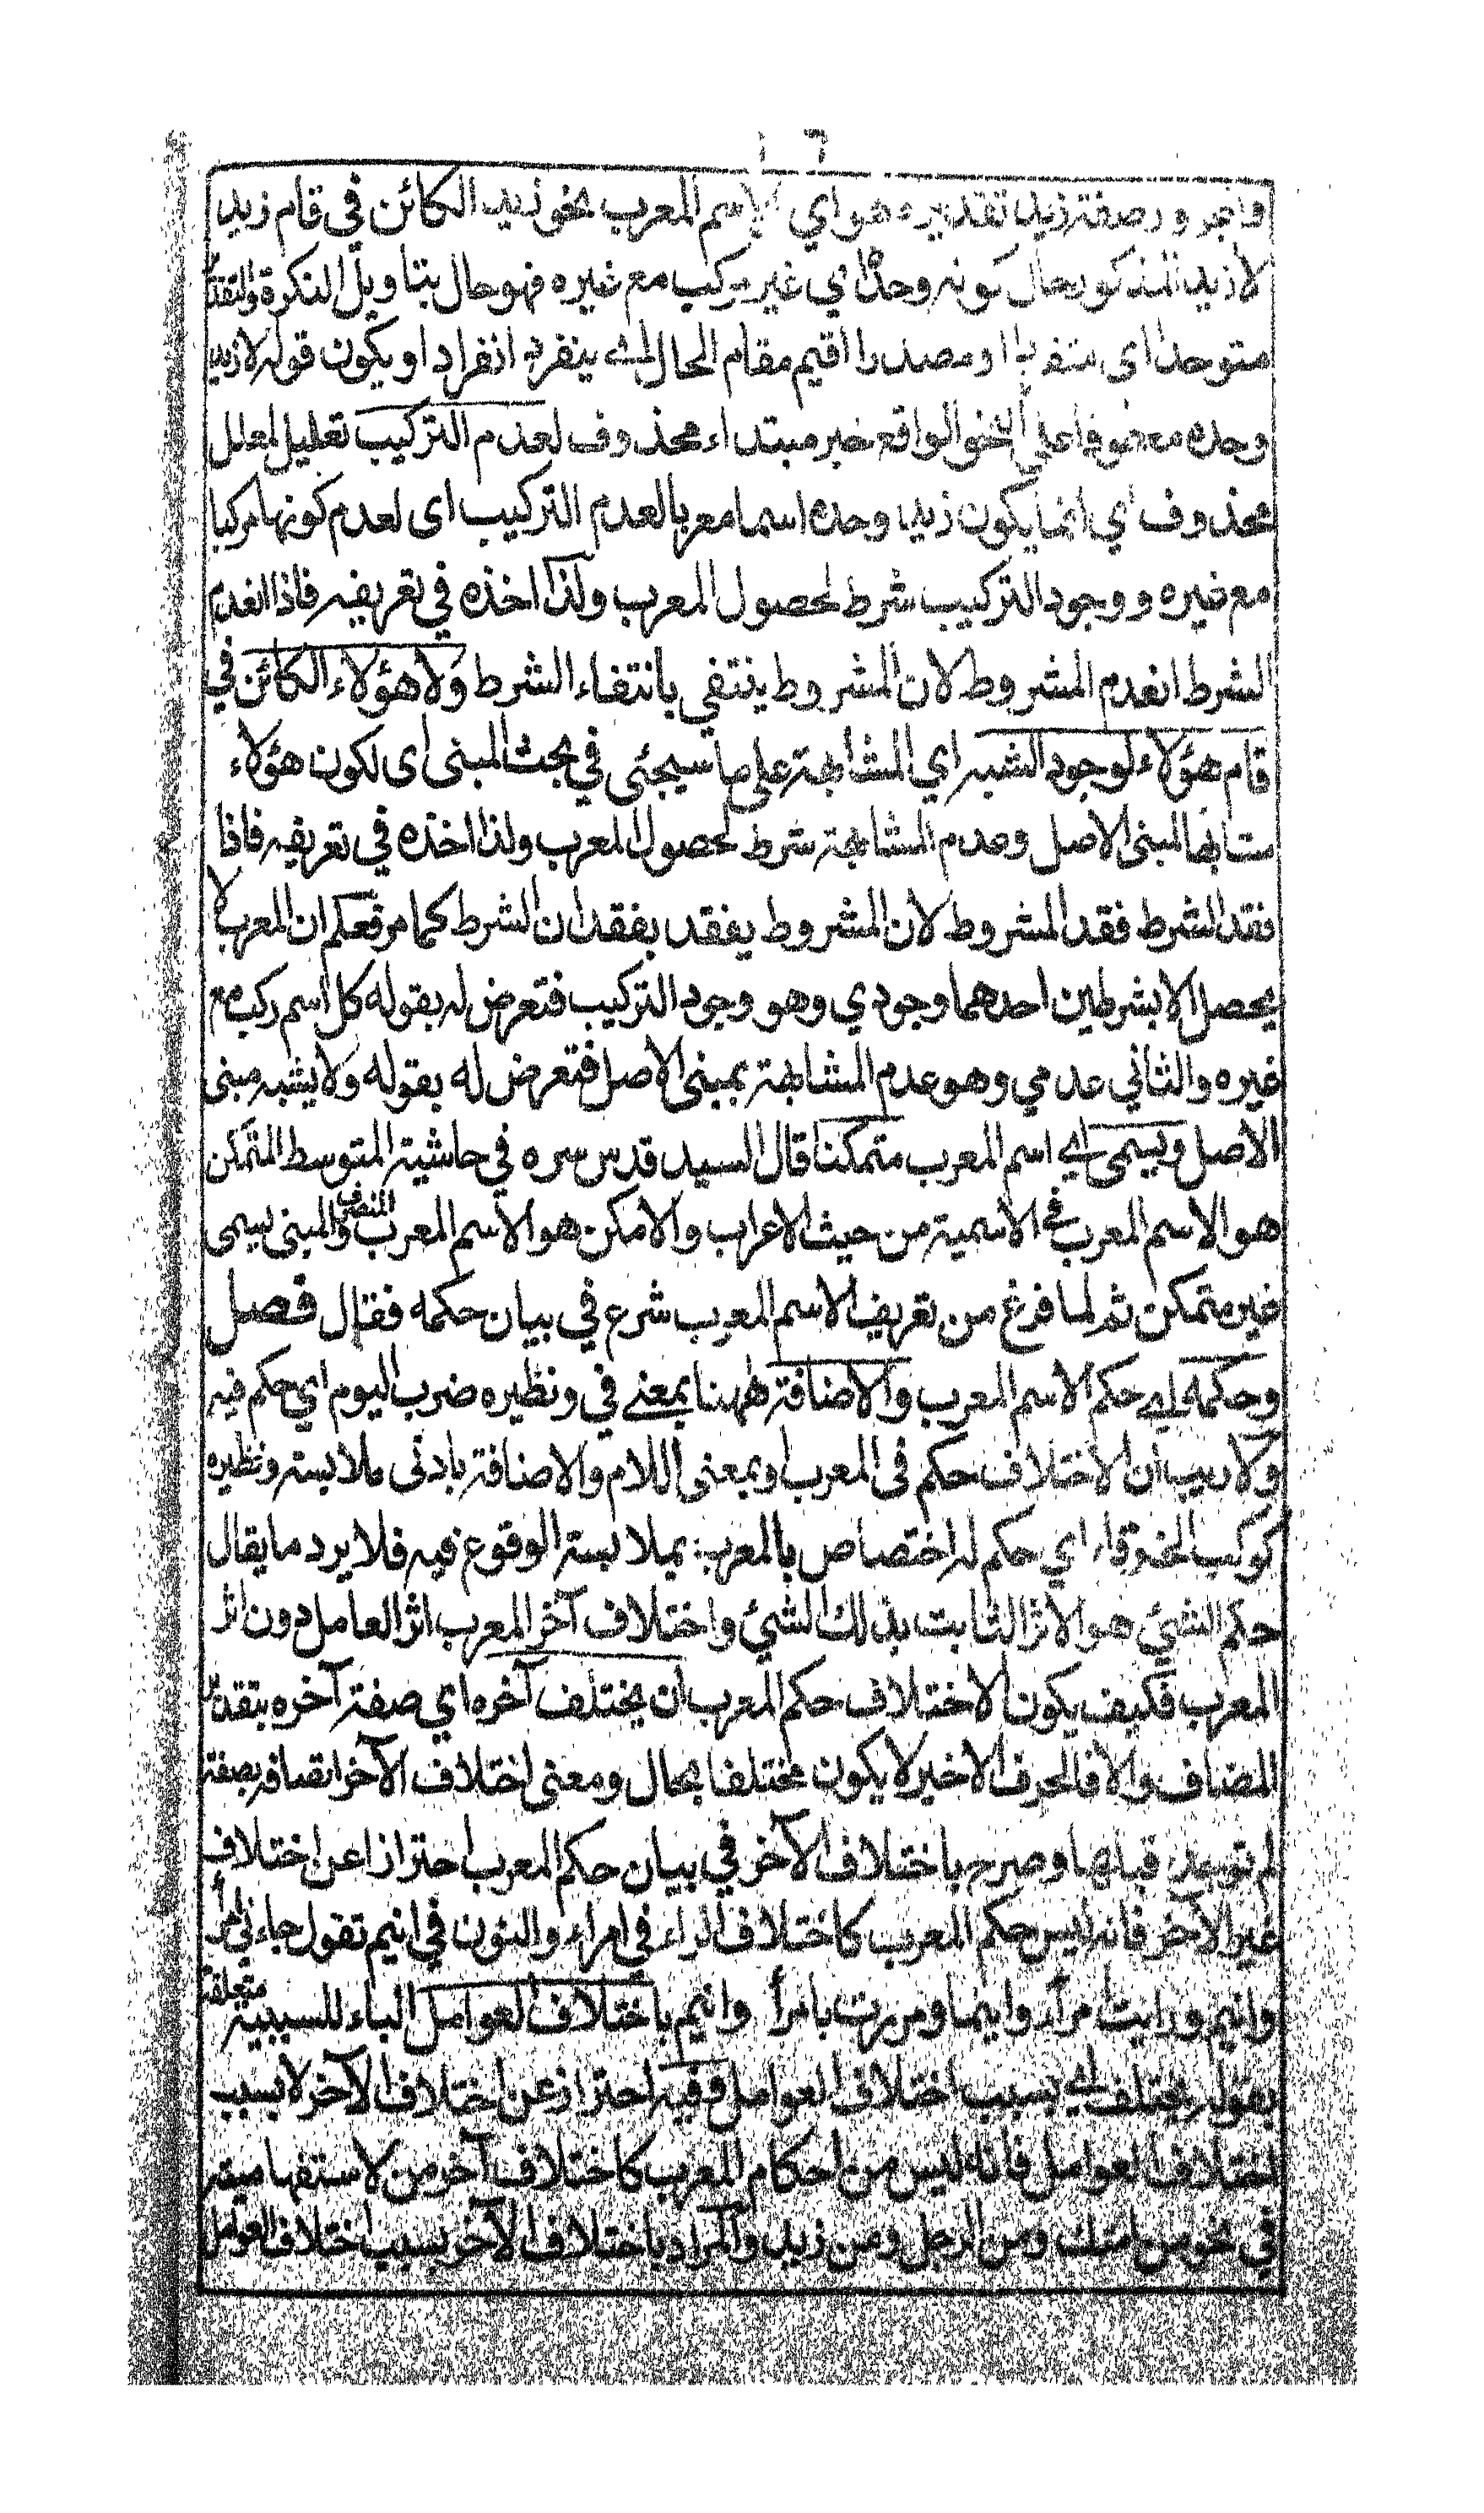 ١٦
والمجرور صفة زيد تقديره هو اي الاسم المعرب نحو زيد الكائن في قام زيد
لا زيد المذكور حال كونه وحده اي غير مركب مع غيره فهو حال بتاويل النكرة والتقدير
متوحدا اى متفردا او مصدرا اقيم مقام الحال اے ينفرد انفرادا ويكون قوله لا زيد
وحده معطوفا على النحو الواقع خبر مبتداء محذوف لعدم التركيب تعليل لمعلل
محذوف اي انما يكون زيد وحده اسما معربا لعدم التركيب اى لعدم كونها مركبا
مع غيره ووجود التركيب شرط لحصول المعرب ولذا اخذه في تعريفه فاذا انعدم
الشرط انعدم المشروط لان المشروط ينتفي بانتفاء الشرط ولا هؤلاء الكائن في
قام هؤلاء لوجود الشبه اي المشابهة على ما سيجئى في بحث المبنى اى لكون هؤلاء
مشابها لمبنى الاصل وعدم المشابهة شرط لحصول المعرب ولذا اخذه في تعريفه فاذا
فقد الشرط فقد المشروط لان المشروط يفقد بفقدان الشرط كما مر فعلم ان المعرب لا
يحصل الا بشرطين احدهما وجودي وهو وجود التركيب فتعرض له بقوله كل اسم ركب مع
غيره والثاني عدمي وهو عدم المشابهة بمبنى الاصل فتعرض له بقوله ولا يشبه مبنى
الاصل ويسمى اے اسم المعرب متمكنا قال السيد قدس سره في حاشية المتوسط المتمكن
هو الاسم المعرب في الاسمية من حيث الاعراب والامكن هو الاسم المعرب المنصرف والمبنى يسمى
غير متمكن ثم لما فرغ من تعريف الاسم المعرب شرع في بيان حكمه فقال فصل
وحكمه اے حكم الاسم المعرب والاضافة ههنا بمعنے في ونظيره ضرب اليوم اي حكم فيه
ولا ريب ان الاختلاف حكم فى المعرب او بمعنى اللام والاضافة بادنى ملابسة ونظيره
كوكب الخرقاء اي حكم له اختصاص بالمعرب بملابسة الوقوع فيه فلا يرد ما يقال
حكم الشيئ هو الاثر الثابت بذلك الشيئ واختلاف آخر المعرب اثر العامل دون اثر
المعرب فكيف يكون الاختلاف حكم المعرب ان يختلف آخره اي صفة آخره بتقدير
المضاف والا فالحرف الاخير لا يكون مختلفا بحال ومعنى اختلاف الآخر اتصافه بصفة
لم توجد قبلها وصرح باختلاف الآخر في بيان حكم المعرب احترازا عن اختلاف
غير الآخر فانه ليس حكم المعرب كاختلاف الراء في امراء والنون في ابنم تقول جاءني امرأ
وابنم ورايت امرأ وابنما ومررت بامرأ وابنم باختلاف العوامل الباء للسببية متعلقة
بقوله يختلف اے بسبب اختلاف العوامل وفيه احتراز عن اختلاف الآخر لا بسبب
اختلاف العوامل فانه ليس من احكام المعرب كاختلاف آخر من لاستفهامية
في نحو من امنك ومن الرجل ومن زيد والمراد باختلاف الآخر بسبب اختلاف العوامل